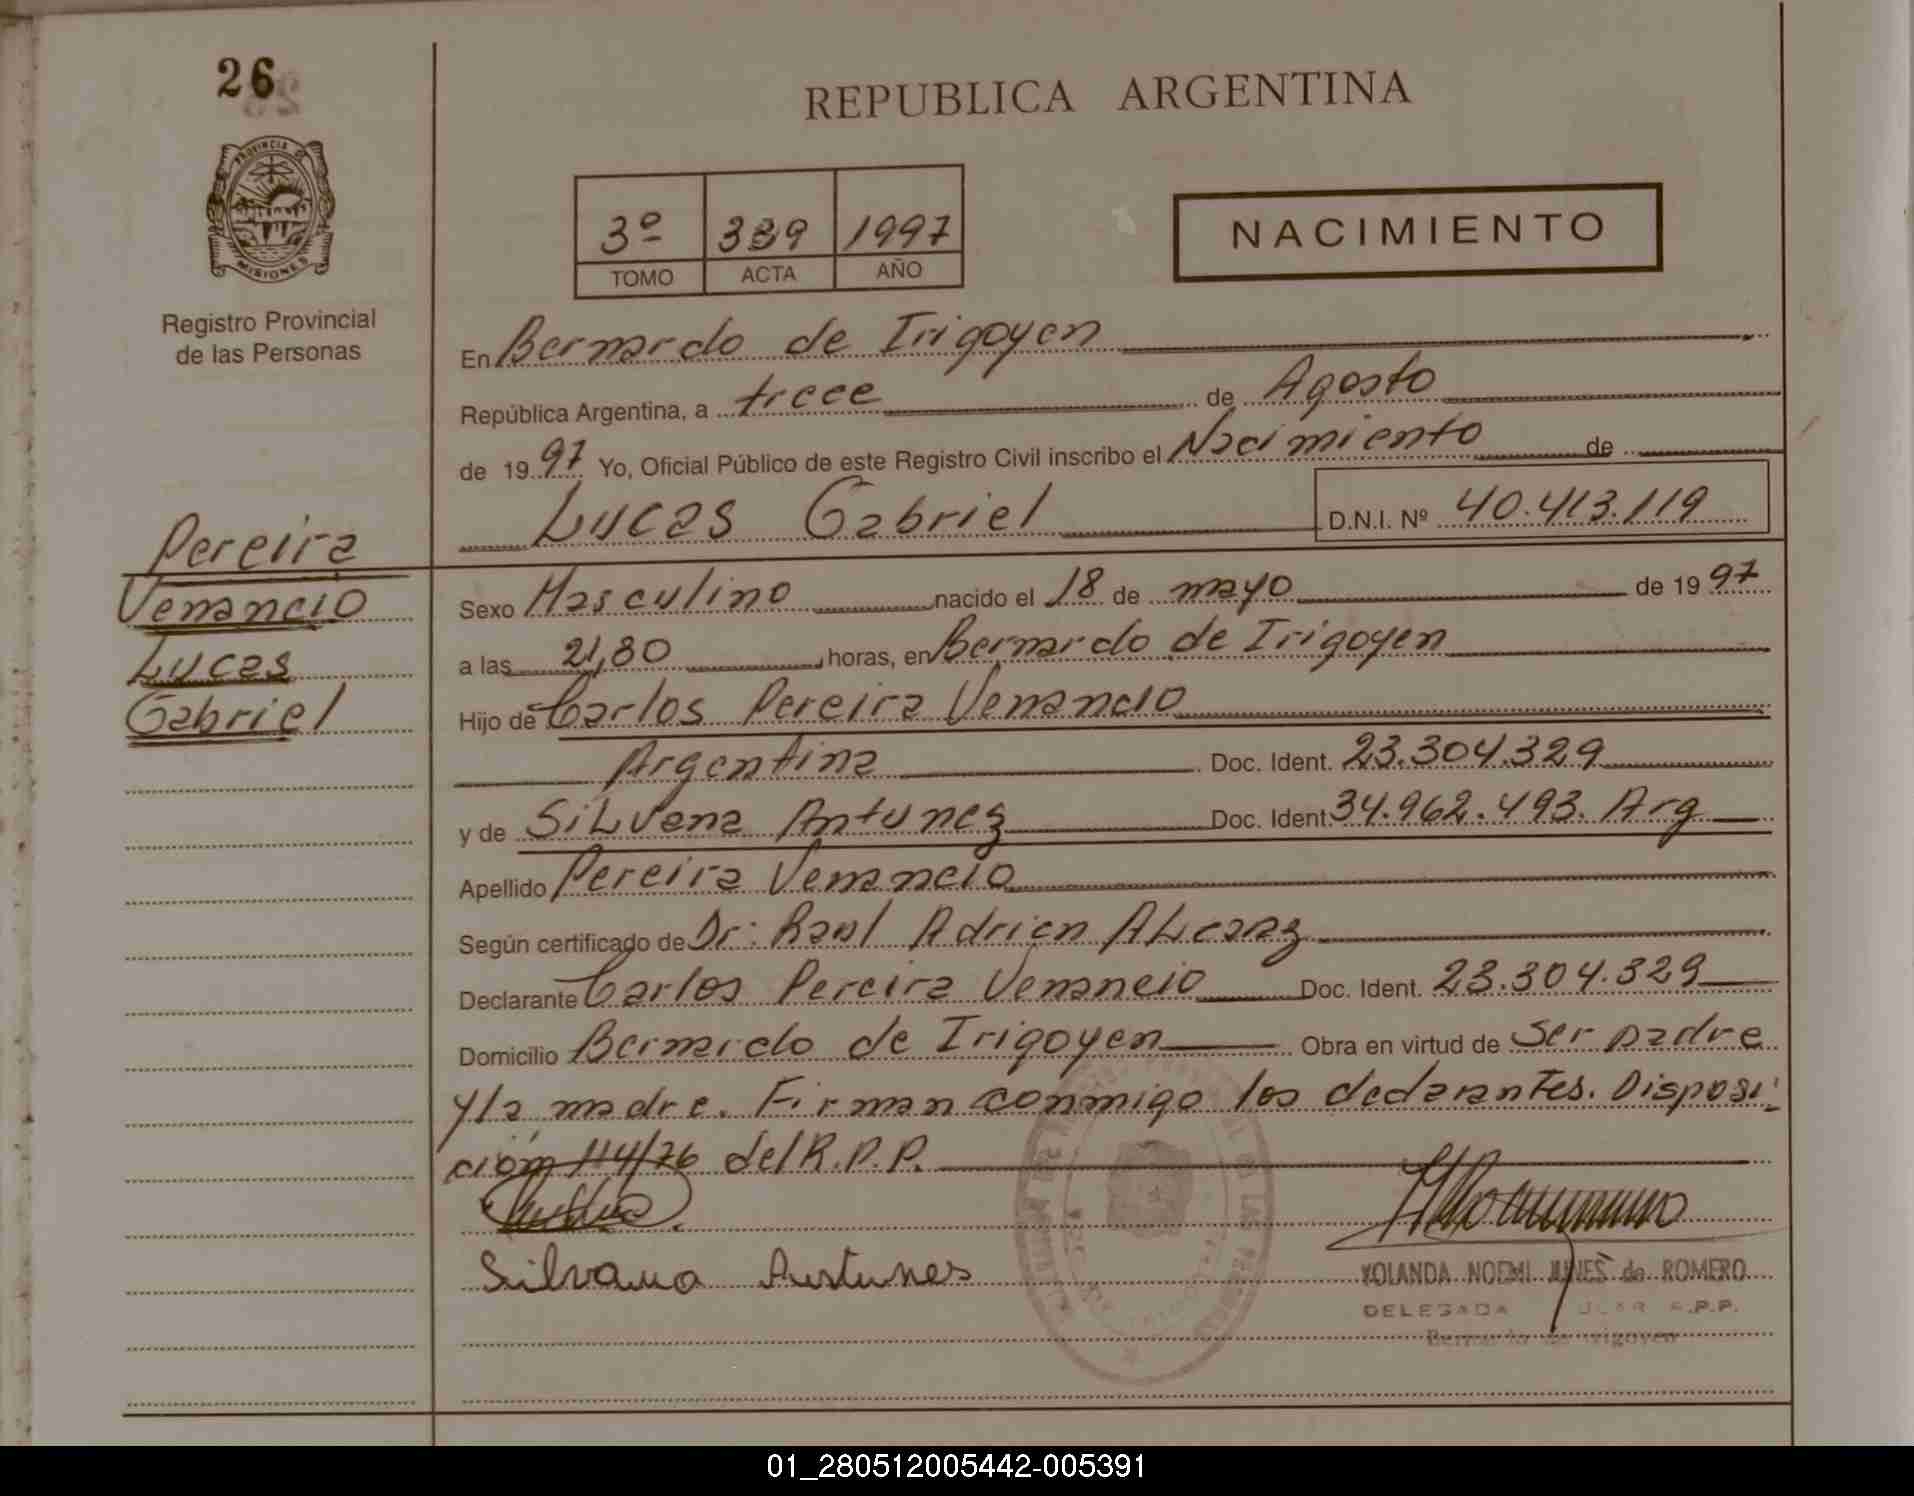 26
REPUBLICA ARGENTINA
PROVINCIA DE
MISIONES
Registro Provincial
de las Personas
3º 339 1997
TOMO ACTA AÑO
NACIMIENTO
En Bernardo de Irigoyen
República Argentina, a trece de Agosto
de 1997 Yo, Oficial Público de este Registro Civil inscribo el Nacimiento de
Lucas Gabriel D.N.I. Nº 40.413.119
Pereira
Venancio
Lucas
Gabriel
Sexo Masculino nacido el 18 de mayo de 1997
a las 21,80 horas, en Bernardo de Irigoyen
Hijo de Carlos Pereira Venancio
Argentina Doc. Ident. 23.304.329
y de Silvana Antunez Doc. Ident. 34.962.493. Arg
Apellido Pereira Venancio
Según certificado de Dr: Raul Adrian Alcaraz
Declarante Carlos Pereira Venancio Doc. Ident. 23.304.329
Domicilio Bernardo de Irigoyen Obra en virtud de ser padre
y la madre. Firman conmigo los declarantes. Disposi
ción 114/76 del R.P.P.
Silvana Antunes
YOLANDA NOEMI de ROMERO
DELEGADA R.P.P.
Bernardo de Irigoyen
01_280512005442-005391